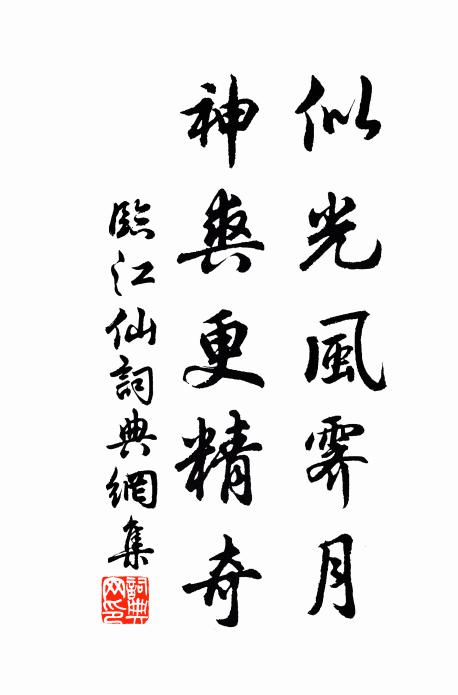 似光風霽月
神爽更精奇
臨江仙詞典網集
詞典網印